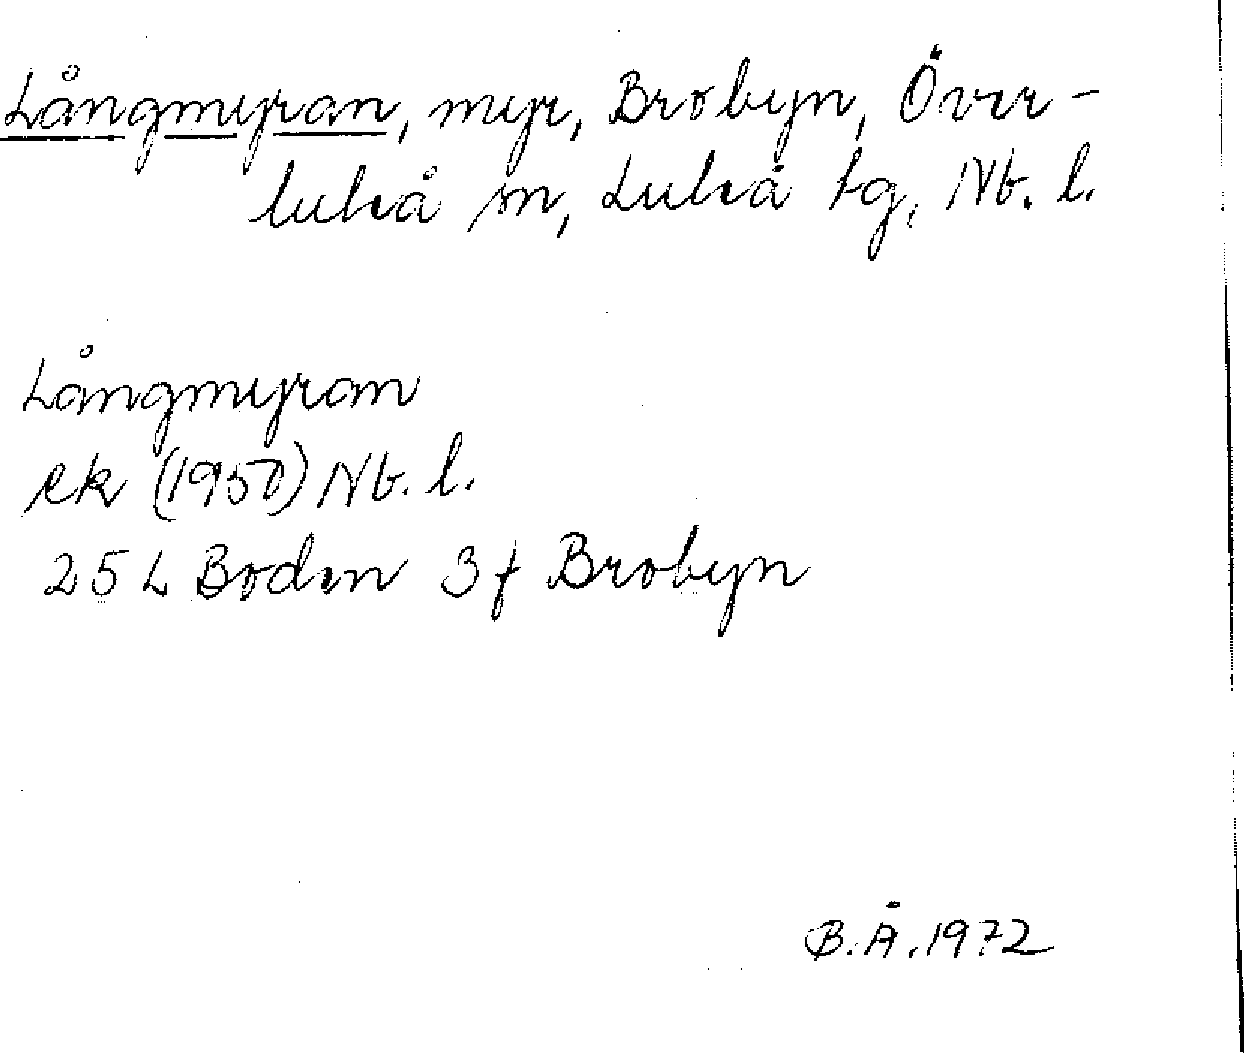 Långmyran, myr, Brobyn, Över-
luleå sn, Luleå tg, Nb. l.
Långmyran
ek (1950) Nb. l.
25 L Boden 3f Brobyn
B.Å.1972